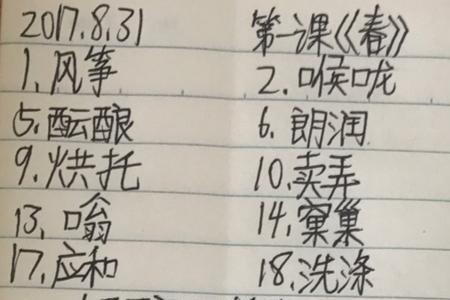 2017.8.31 第一课《春》
1.风筝 2.喉咙
5.酝酿 6.朗润
9.烘托 10.卖弄
13.嗡 14.窠巢
17.应和 18.洗涤